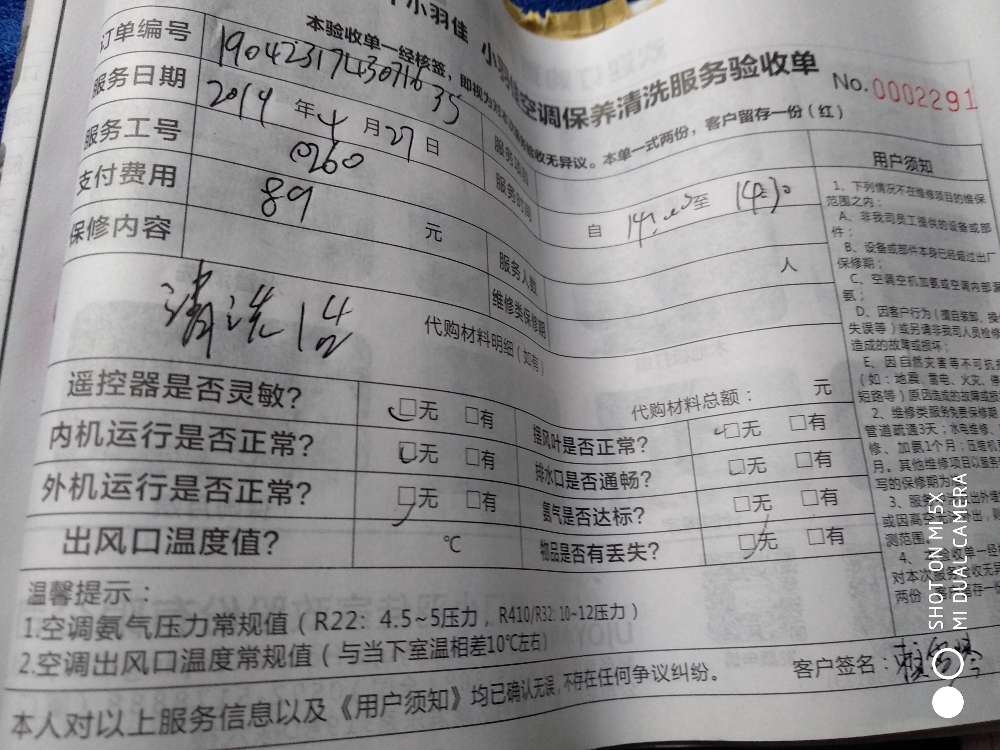 小羽佳 小羽佳空调保养清洗服务验收单
No.0002291
本验收单一经核签，即视为对本次服务验收无异议。本单一式两份，客户留存一份（红）
订单编号 1904231743071635
服务项目
服务日期 2019 年 4 月 27 日
服务时间 自 至 14:30
服务工号 0260
支付费用 89 元
服务人数 人
保修内容
维修类保修期
清洗1台
代购材料明细（如有）
代购材料总额： 元
遥控器是否灵敏? □无 □有
摆风叶是否正常? □无 □有
内机运行是否正常? □无 □有
排水口是否通畅? □无 □有
外机运行是否正常? □无 □有
氨气是否达标? □无 □有
出风口温度值? ℃
物品是否有丢失? □无 □有
用户须知
1、下列情况不在维修项目的维保
范围之内：
A、非我司员工提供的设备或部
件；
B、设备或部件本身已经超过出厂
保修期；
C、空调空机加氨或空调内部漏
氨；
D、因客户行为（擅自装卸、操
失误等）或另请非我司人员检修
造成的故障或损坏；
E、因自然灾害等不可抗
（如：地震、雷电、火灾、
短路等）原因造成的故障或损
2、维修类服务免费保修期
管道疏通3天；水电维修、
修、加氨1个月；压缩机
月。其他维修项目以服务
写的保修期为
3、服务
或因高
测范围。
4、本验收单一经
对本次服务验收无异
两份，客户留存一
温馨提示：
1.空调氨气压力常规值（R22：4.5~5压力，R410/R32:10~12压力）
2.空调出风口温度常规值（与当下室温相差10℃左右）
客户签名：
本人对以上服务信息以及《用户须知》均已确认无误，不存在任何争议纠纷。
SHOT ON MI 5X
MI DUAL CAMERA